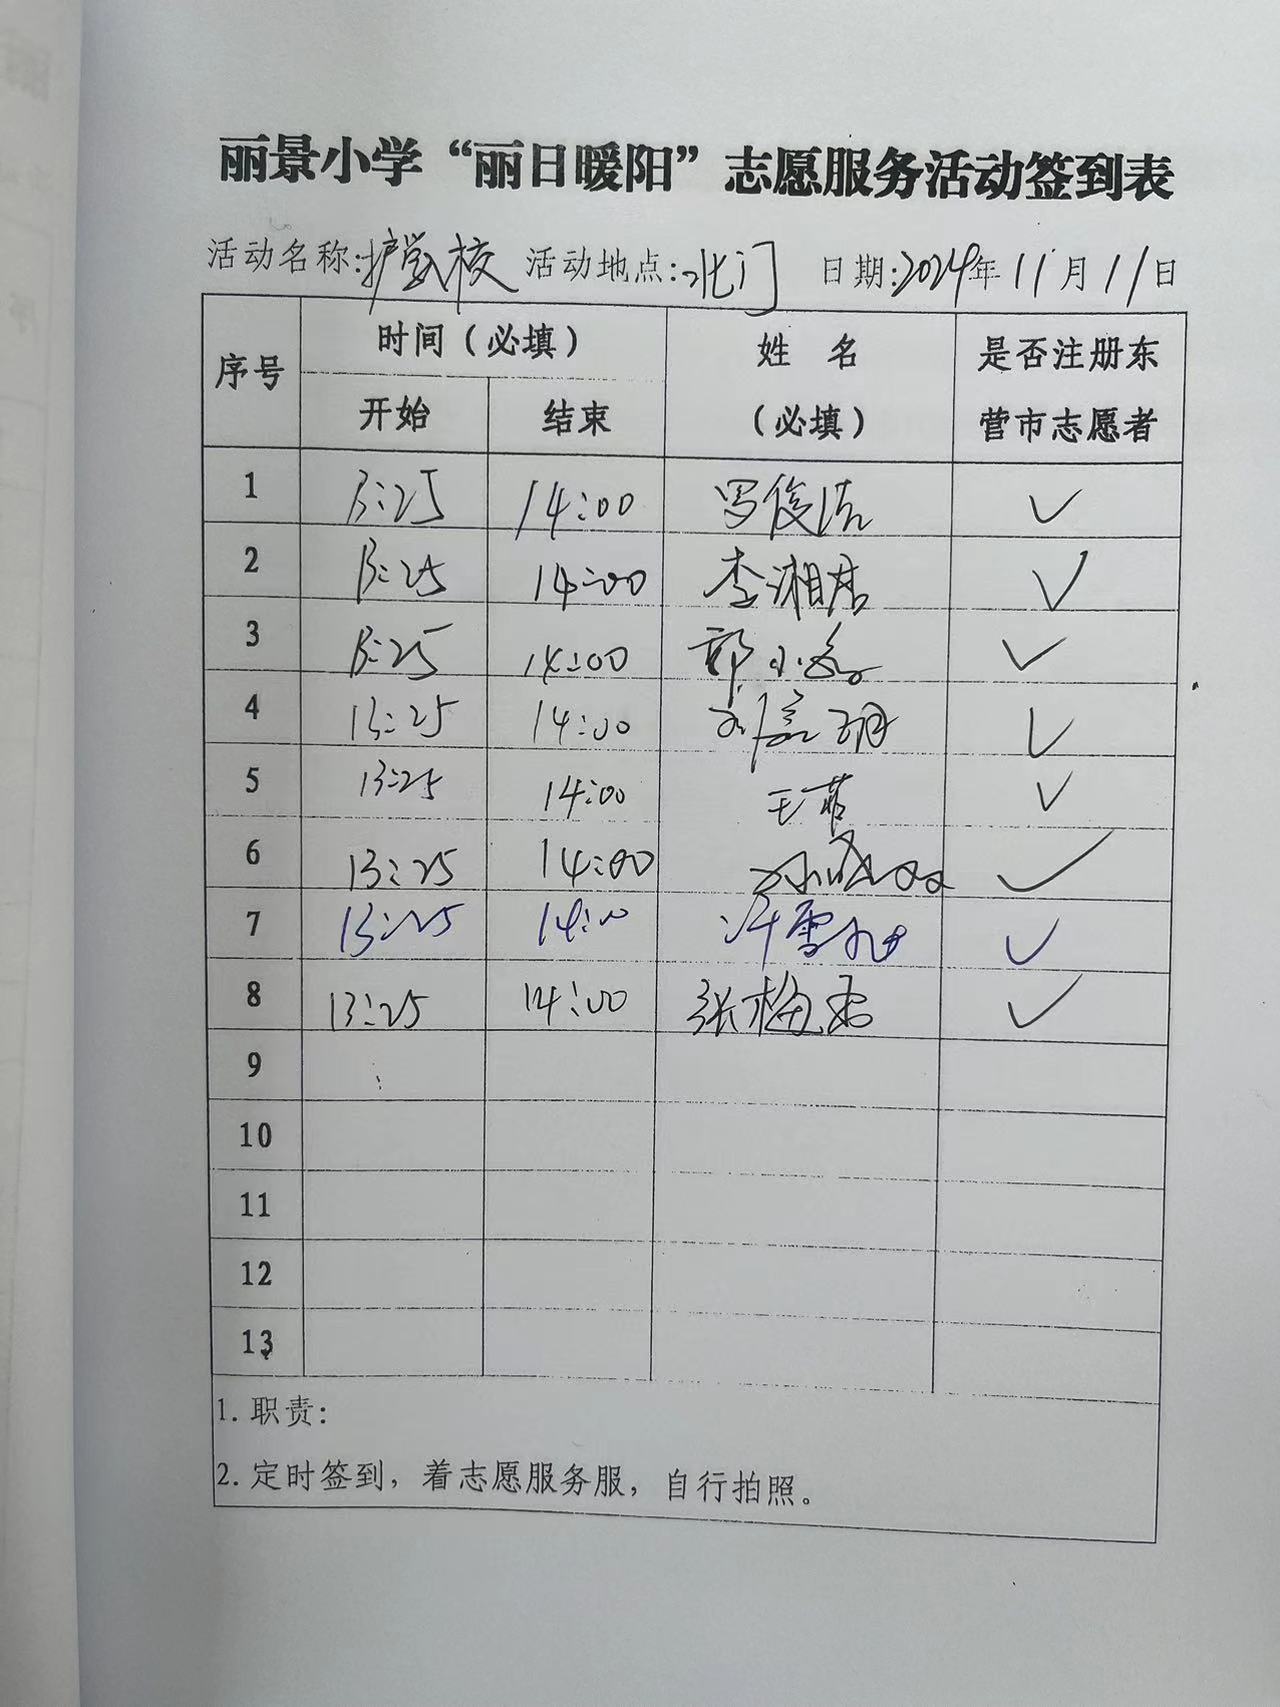 丽景小学“丽日暖阳”志愿服务活动签到表
活动名称:护学校 活动地点:北门 日期:2024年11月11日
序号 时间（必填） 姓 名 是否注册东
开始 结束 （必填） 营市志愿者
1 13:25 14:00 罗俊洁 ✓
2 13:25 14:00 李湘君 ✓
3 13:25 14:00 ✓
4 13:25 14:00 ✓
5 13:25 14:00 王菲 ✓
6 13:25 14:00 ✓
7 13:25 14:00 ✓
8 13:25 14:00 张梅 ✓
9
10
11
12
13
1. 职责:
2. 定时签到，着志愿服务服，自行拍照。